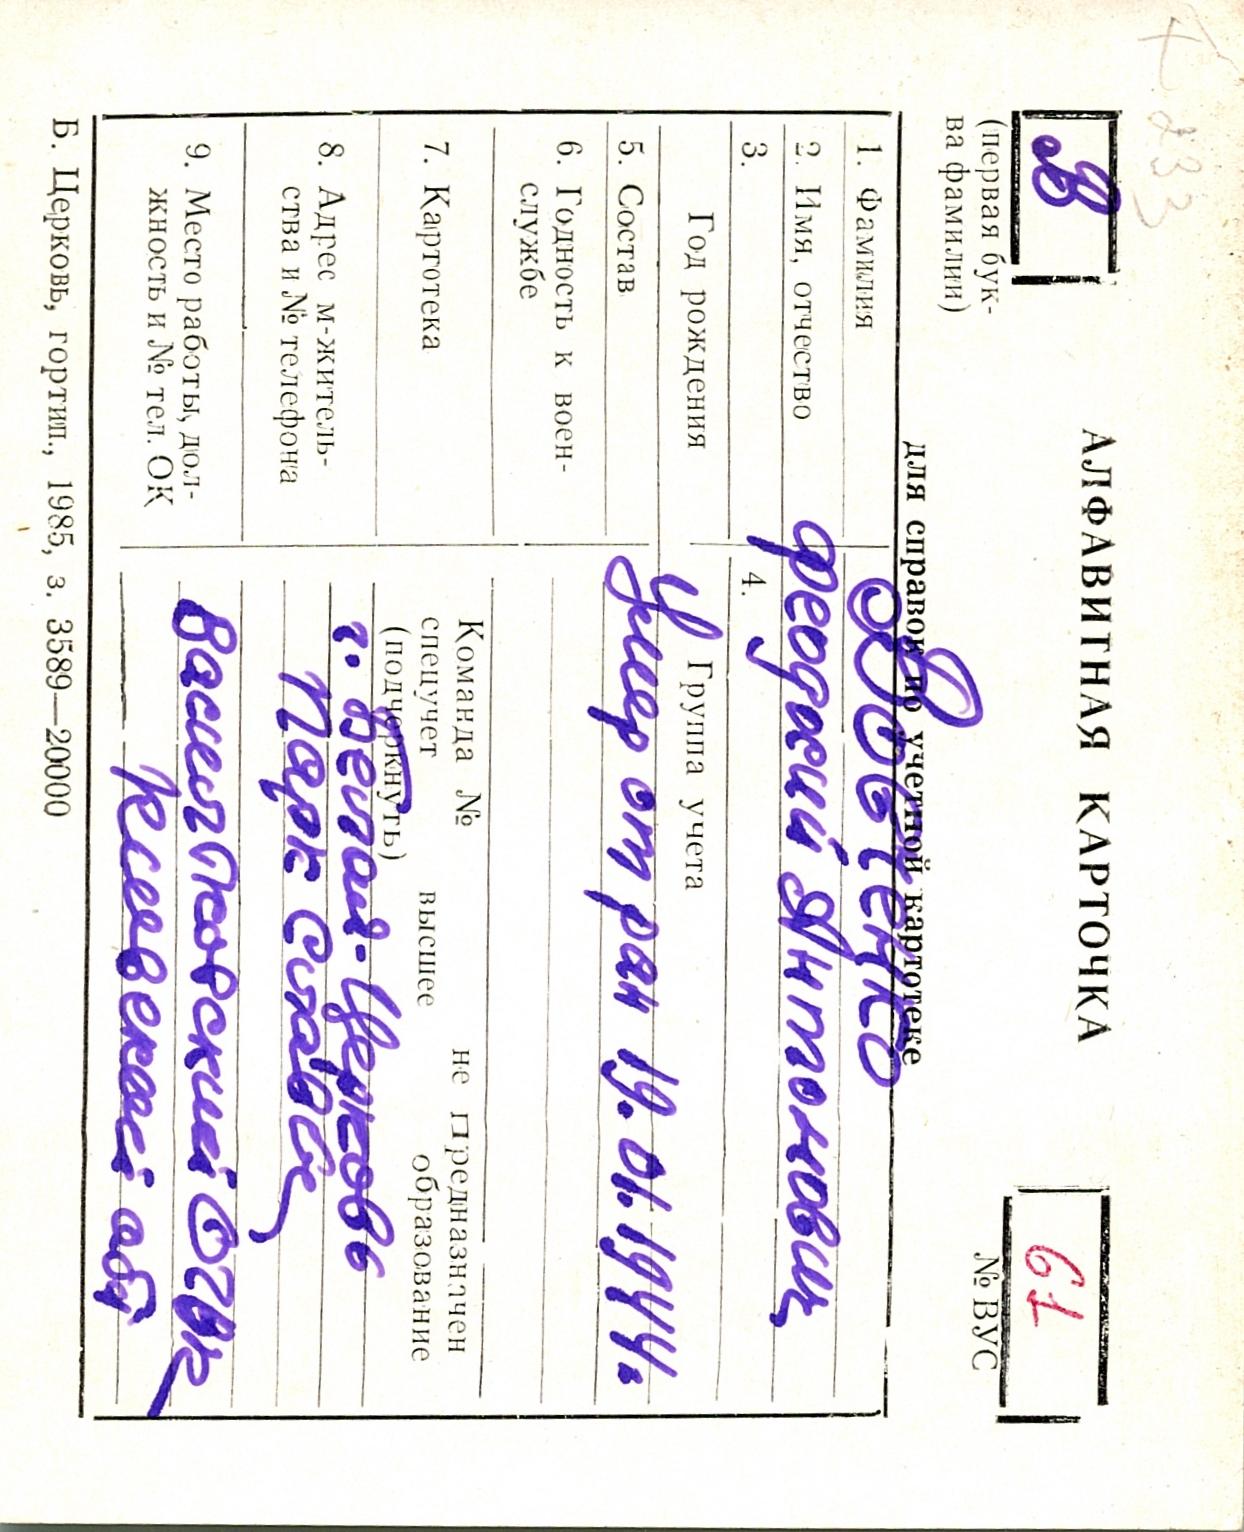 х 233
В
(первая бук-
ва фамилии)
АЛФАВИТНАЯ КАРТОЧКА
61
№ ВУС
для справок по учетной картотеке
1. Фамилия
Вовченко
2. Имя, отчество
феодосий Антонович
3.
Год рождения
4.
Группа учета
5. Состав
Умер от ран 19.01.1944.
6. Годность к воен-
службе
7. Картотека
Команда № не предназначен
спецучет высшее образование
(подчеркнуть)
8. Адрес м-житель-
ства и № телефона
г. Белая-Церковь
Парк Славы
9. Место работы, дол-
жность и № тел. ОК
Васильковский ОГВК
Киевской обл
Б. Церковь, гортип., 1985, з. 3589—20000